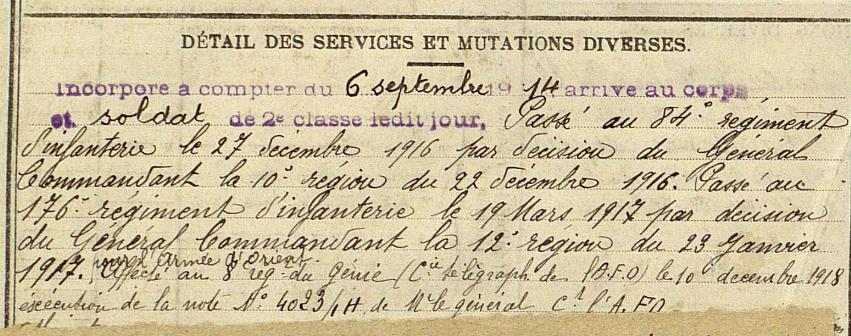 DÉTAIL DES SERVICES ET MUTATIONS DIVERSES.
Incorporé à compter du 6 septembre 1914 arrivé au corps
et soldat de 2e classe ledit jour, Passé au 84e régiment
d'infanterie le 27 décembre 1916 par décision du Général
Commandant la 10e région du 22 décembre 1916. Passé au
176e régiment d'infanterie le 19 Mars 1917 par décision
du Général Commandant la 12e région du 23 Janvier
1917. pour l'Armée d'Orient.
Affecté au 8e rég. du Génie (Cie télégraph de l'A.F.O) le 10 decembre 1918
exécution de la note No 4023/1H de Mr le général Ct l'A.F.O